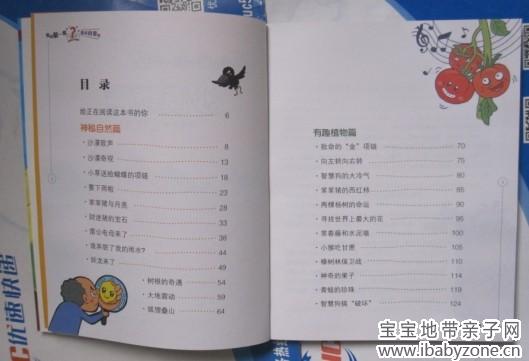 目 录
给正在阅读这本书的你 6
神秘自然篇
·沙漠歌声 8
·沙漠奇观 13
·小草送给蝴蝶的项链 18
·雪下雨啦 23
·笨笨猪与月亮 28
·财迷猪的宝石 33
·雷公电母来了 38
·谁弄脏了我的雨水？ 44
·妖龙来了 49
·树根的奇遇 54
·大地震动 59
·狐狸登山 64
有趣植物篇
·致命的“金”项链 70
·向左转向右转 75
·智慧狗的大冷气 80
·笨笨猪的西红柿 85
·两棵杨树的命运 90
·寻找世界上最大的花 95
·常春藤和水泥墙 100
·小猴吃甘蔗 105
·橡树林保卫战 110
·神奇的果子 114
·青蛙的珍珠 119
·智慧狗搞“破坏” 124
优速快递
宝宝地带亲子网
www.ibabyzone.cn